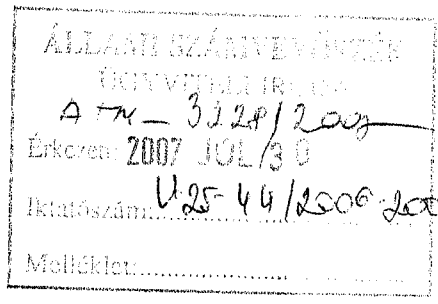 ÁLLAMI SZÁMVEVŐSZÉK
ÜGYVITELI IRODA
Érkezett: 2007 JÚL 30
Iktatószám: V-25-44/2006-200
Melléklet: